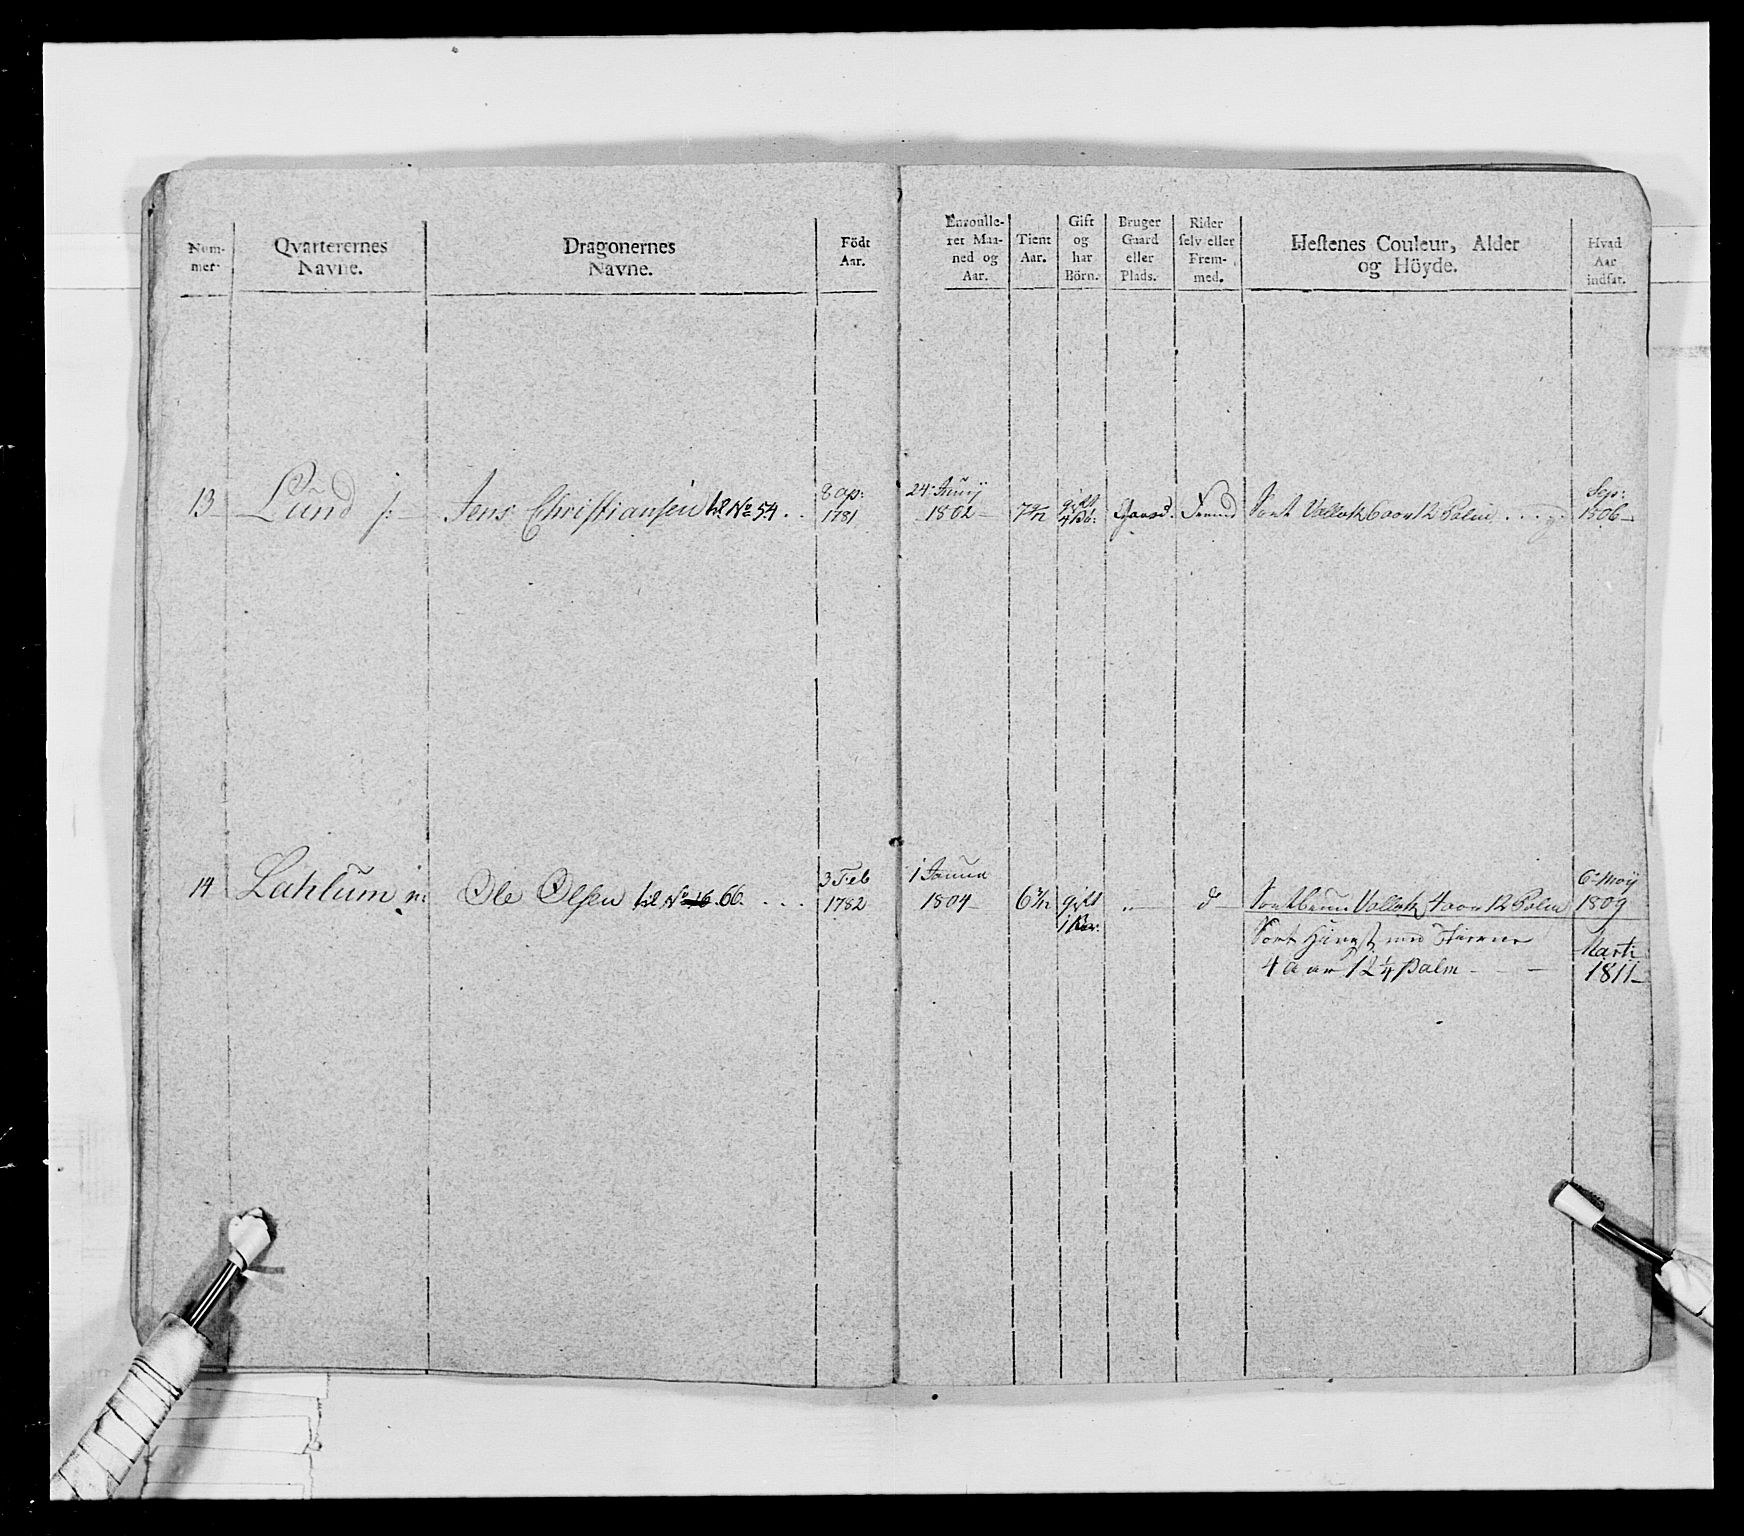 Num-
mer.
Qvarterernes
Navne.
Dragonernes
Navne.
Födt
Aar.
Enroulle-
ret Maa-
ned og
Aar.
Tient
Aar.
Gift
og
har
Börn.
Bruger
Gaard
eller
Plads.
Rider
selv eller
Frem-
med.
Hestenes Couleur, Alder
og Höyde.
Hvad
Aar
indsat.
13 Lund Jens Christiansen til No 54
8 ap:
1781
24 Junij
1802
gift
4 Bö:
Gaard. Fremd Sort Vallak 6 aar 12 Palm
Sep:
1806
14 Lahlum Ole Olsen til No 16 66.
3 Feb
1782
1 Januar
1804
gift
1 Bar:
d
Sortbruun Vallak 4 aar 12 Palm
6 Maij
1809
Sort Hingst med Stierne
4 aar 12 1/4 Palm
Marti
1811